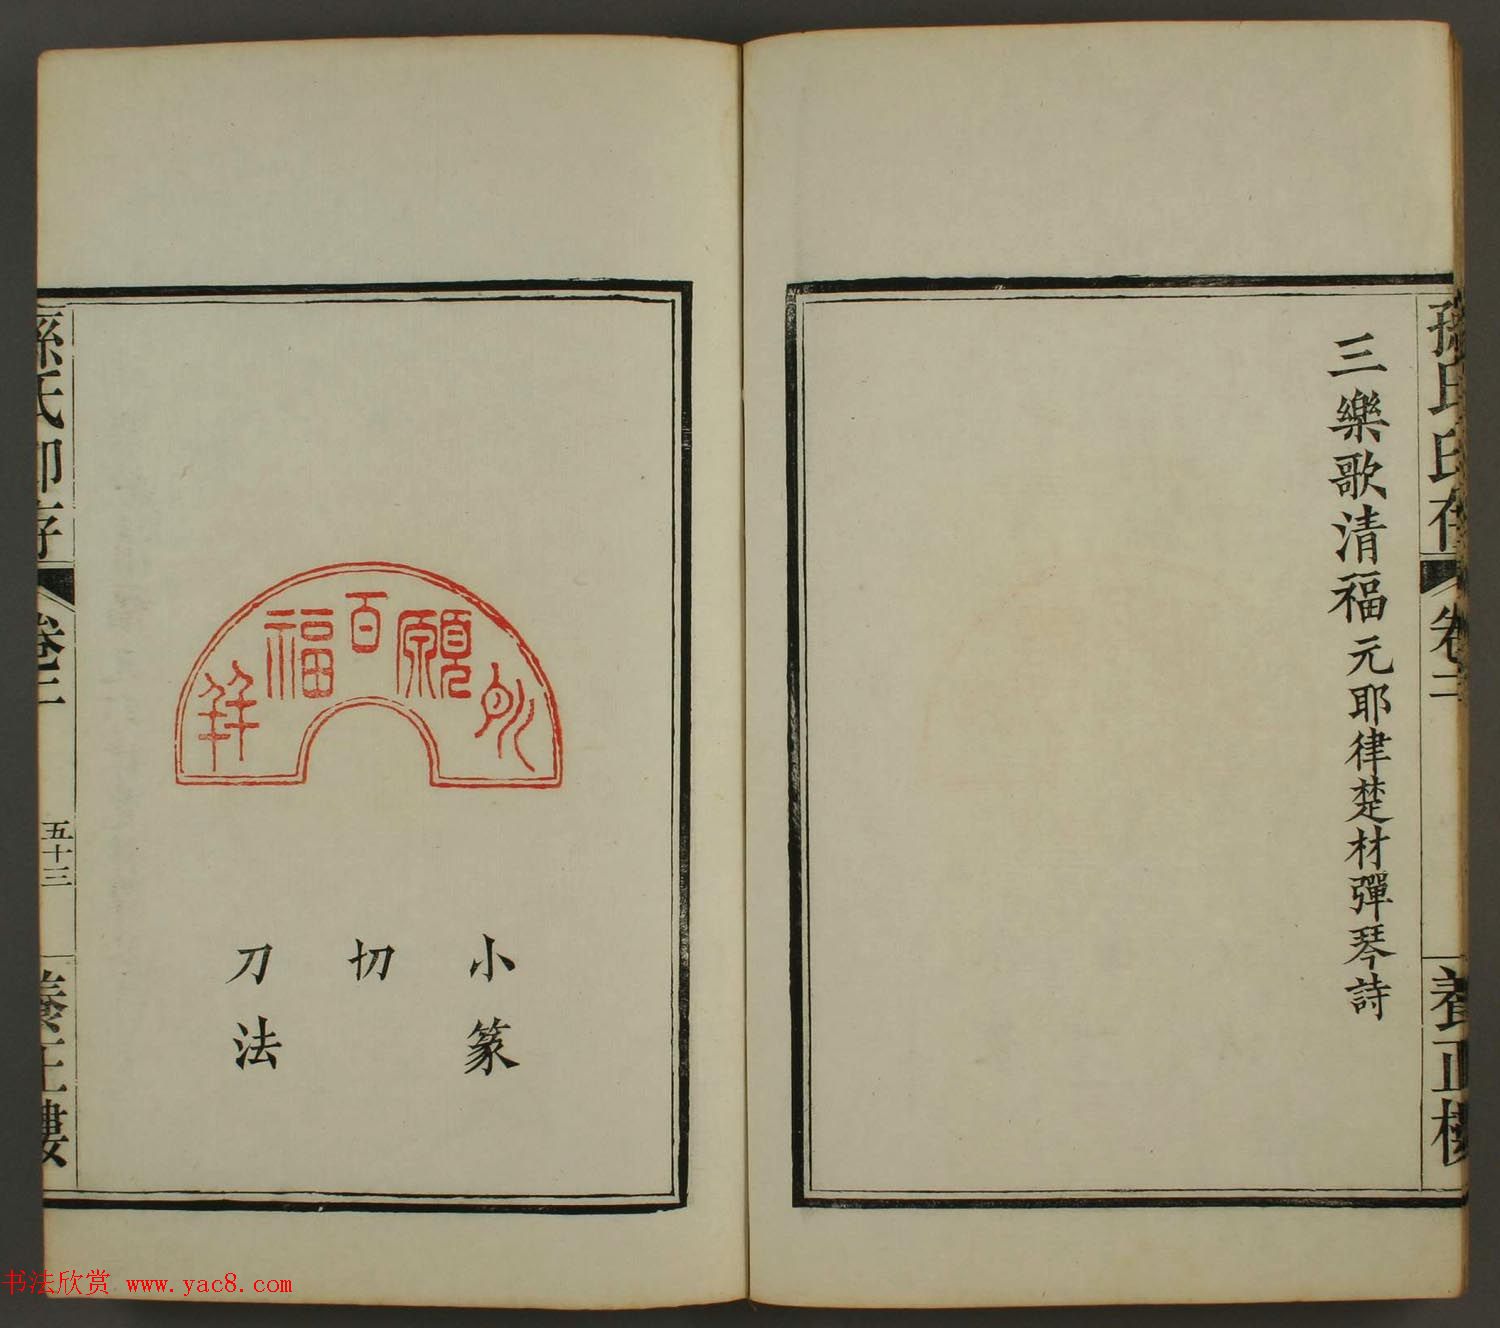 三樂歌清福元耶律楚材彈琴詩
孫氏印存
卷三
養正樓
願百福
小篆
切
刀法
孫氏印存
卷三
五十三
養正樓
书法欣赏 www.yac8.com